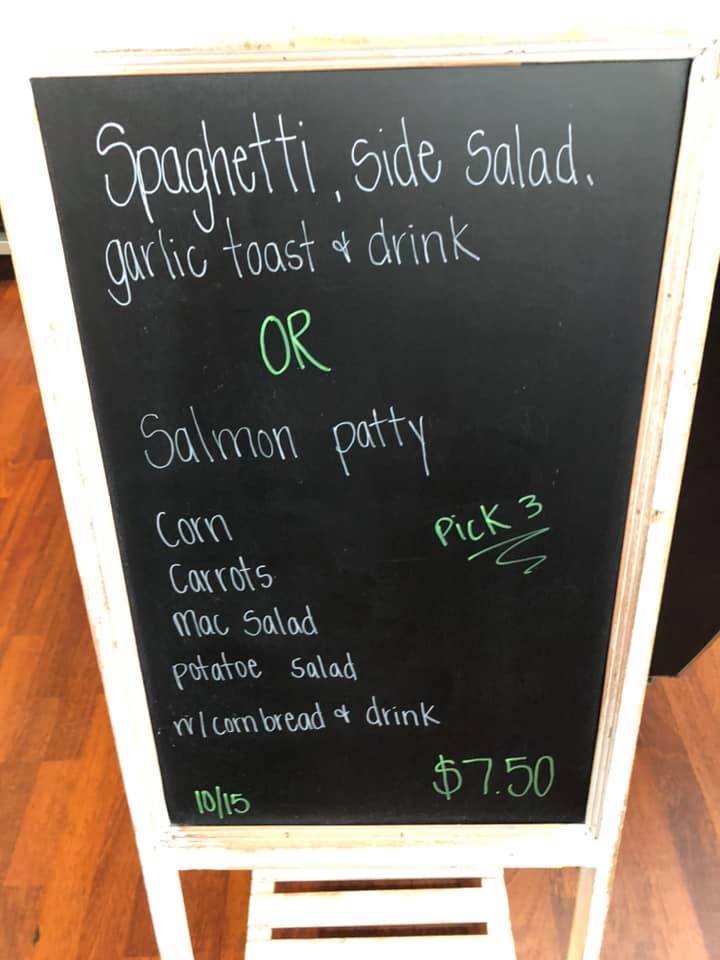 Spaghetti, side salad,
garlic toast & drink
OR
Salmon patty
Pick 3
Corn
Carrots
Mac Salad
potatoe salad
w/cornbread & drink
$7.50
10/15